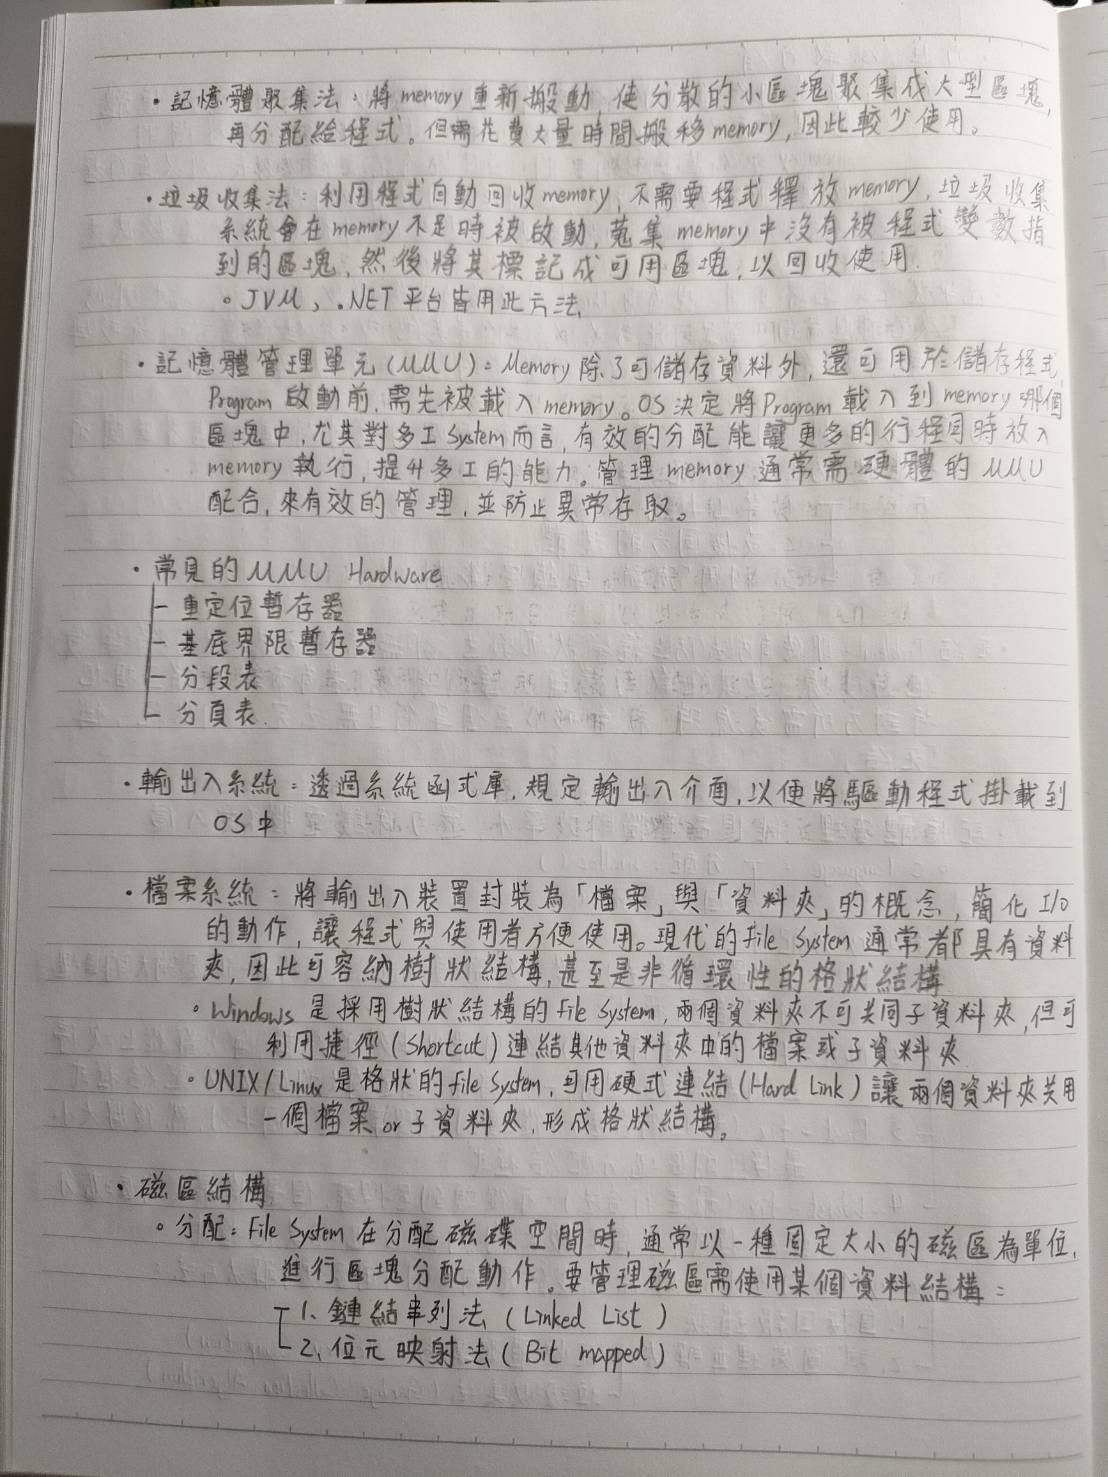 ・記憶體聚集法：將 memory 重新搬動，使分散的小區塊聚集成大型區塊，
再分配給程式。但需花費大量時間搬移 memory，因此較少使用。
・垃圾收集法：利用程式自動回收 memory，不需要程式釋放 memory，垃圾收集
系統會在 memory 不足時被啟動，蒐集 memory 中沒有被程式變數指
到的區塊，然後將其標記成可用區塊，以回收使用.
。JVM、.NET 平台皆用此方法.
・記憶體管理單元 (MMU)：Memory 除了可儲存資料外，還可用於儲存程式.
Program 啟動前，需先被載入 memory。OS 決定將 Program 載入到 memory 哪個
區塊中，尤其對多工 System 而言，有效的分配能讓更多的行程同時放入
memory 執行，提升多工的能力。管理 memory 通常需硬體的 MMU
配合，來有效的管理，並防止異常存取。
・常見的 MMU Hardware
- 重定位暫存器
- 基底界限暫存器
- 分段表
- 分頁表.
・輸出入系統：透過系統函式庫，規定輸出入介面，以便將驅動程式掛載到
OS 中
・檔案系統：將輸出入裝置封裝為「檔案」與「資料夾」的概念，簡化 I/O
的動作，讓程式與使用者方便使用。現代的 File System 通常都具有資料
夾，因此可容納樹狀結構，甚至是非循環性的格狀結構.
。Windows 是採用樹狀結構的 File System，兩個資料夾不可共同子資料夾，但可
利用捷徑 (Shortcut) 連結其他資料夾中的檔案或子資料夾
。UNIX/Linux 是格狀的 file System，可用硬式連結 (Hard Link) 讓兩個資料夾共用
一個檔案 or 子資料夾，形成格狀結構。
・磁區結構
。分配：File System 在分配磁碟空間時，通常以一種固定大小的磁區為單位，
進行區塊分配動作。要管理磁區需使用某個資料結構：
1、鏈結串列法 (Linked List)
2、位元映射法 (Bit mapped)